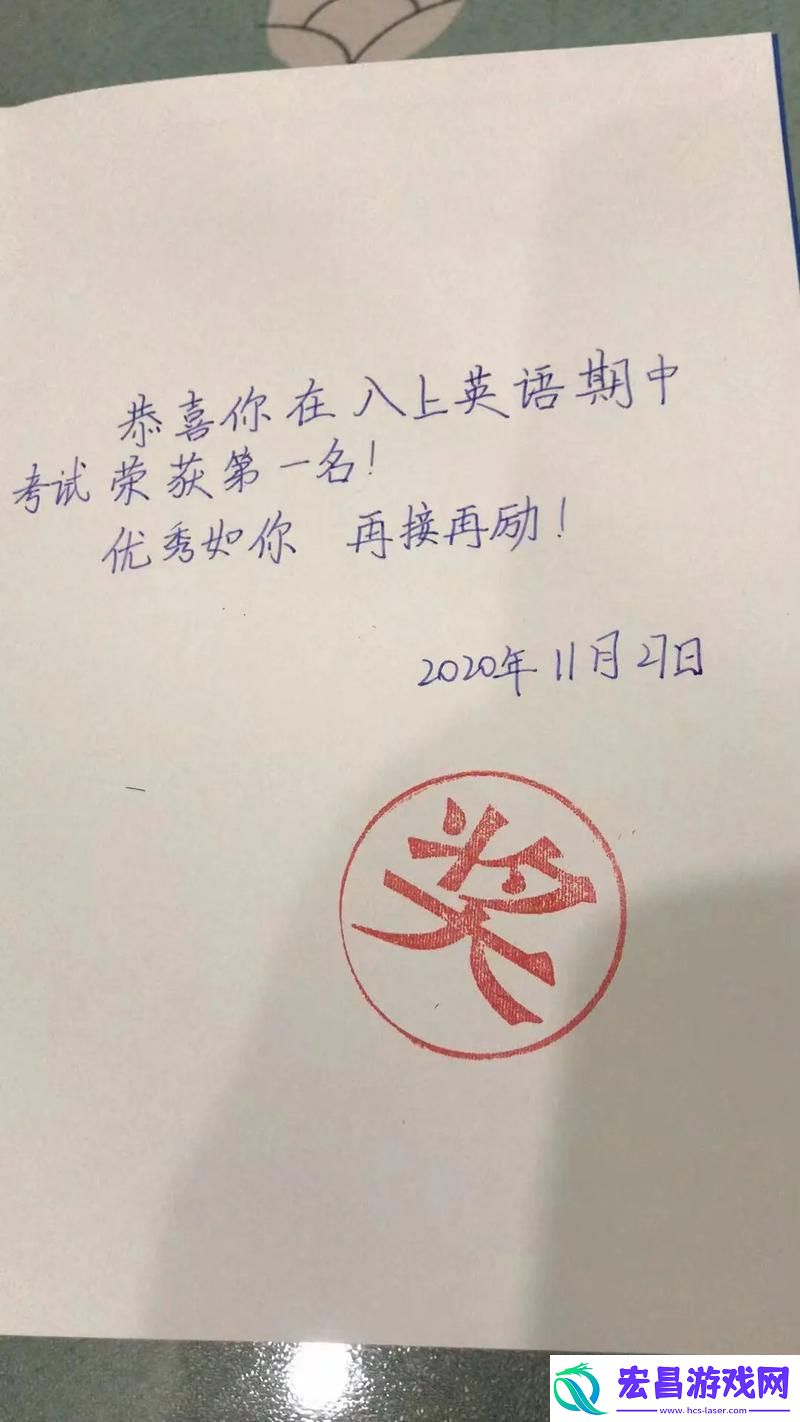 恭喜你在八上英语期中
考试荣获第一名!
优秀如你 再接再励!
2020年11月27日
奖
宏昌游戏网
www.hcs-laser.com